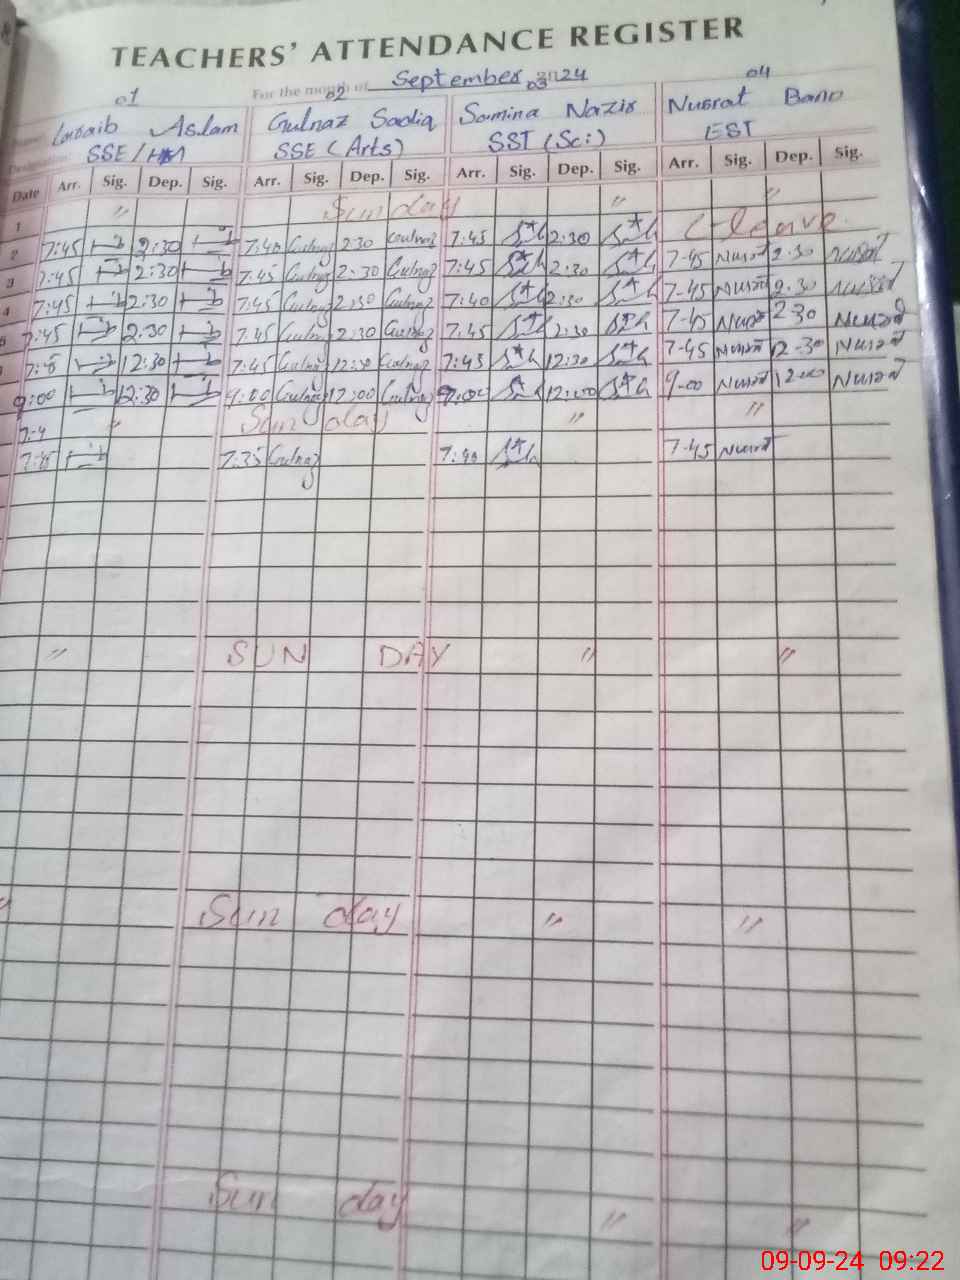 TEACHERS' ATTENDANCE REGISTER
For the month of September 2024
01 02 03 04
Aslam Gulnaz Sadiq Samina Nazir Nusrat Bano
SSE/HM SSE (Arts) SST (Sci) EST
Date Arr. Sig. Dep. Sig. Arr. Sig. Dep. Sig. Arr. Sig. Dep. Sig. Arr. Sig. Dep. Sig.
1 " Sunday " "
2 7:45 2:30 7:40 Gulnaz 2:30 Gulnaz 7:45 2:30 C-leave
3 7:45 2:30 7:45 Gulnaz 2:30 Gulnaz 7:45 2:30 7-45 Nusrat 2-30 Nusrat
4 7:45 2:30 7:45 Gulnaz 2:30 Gulnaz 7:40 2:30 7-45 Nusrat 2.30 Nusrat
7:45 2:30 7:45 Gulnaz 2:30 Gulnaz 7:45 2:30 7-45 Nusrat 2-30 Nusrat
12:30 7:45 Gulnaz 12:30 Gulnaz 7:45 12:30 7-45 Nusrat 12-30 Nusrat
9:00 12:30 9:00 Gulnaz 12:00 Gulnaz 9:00 12:00 9-00 Nusrat 12-00 Nusrat
" Sunday " "
7:35 Gulnaz 7:40 7-45 Nusrat
" SUN DAY " "
" Sunday " "
Sunday " "
09-09-24 09:22